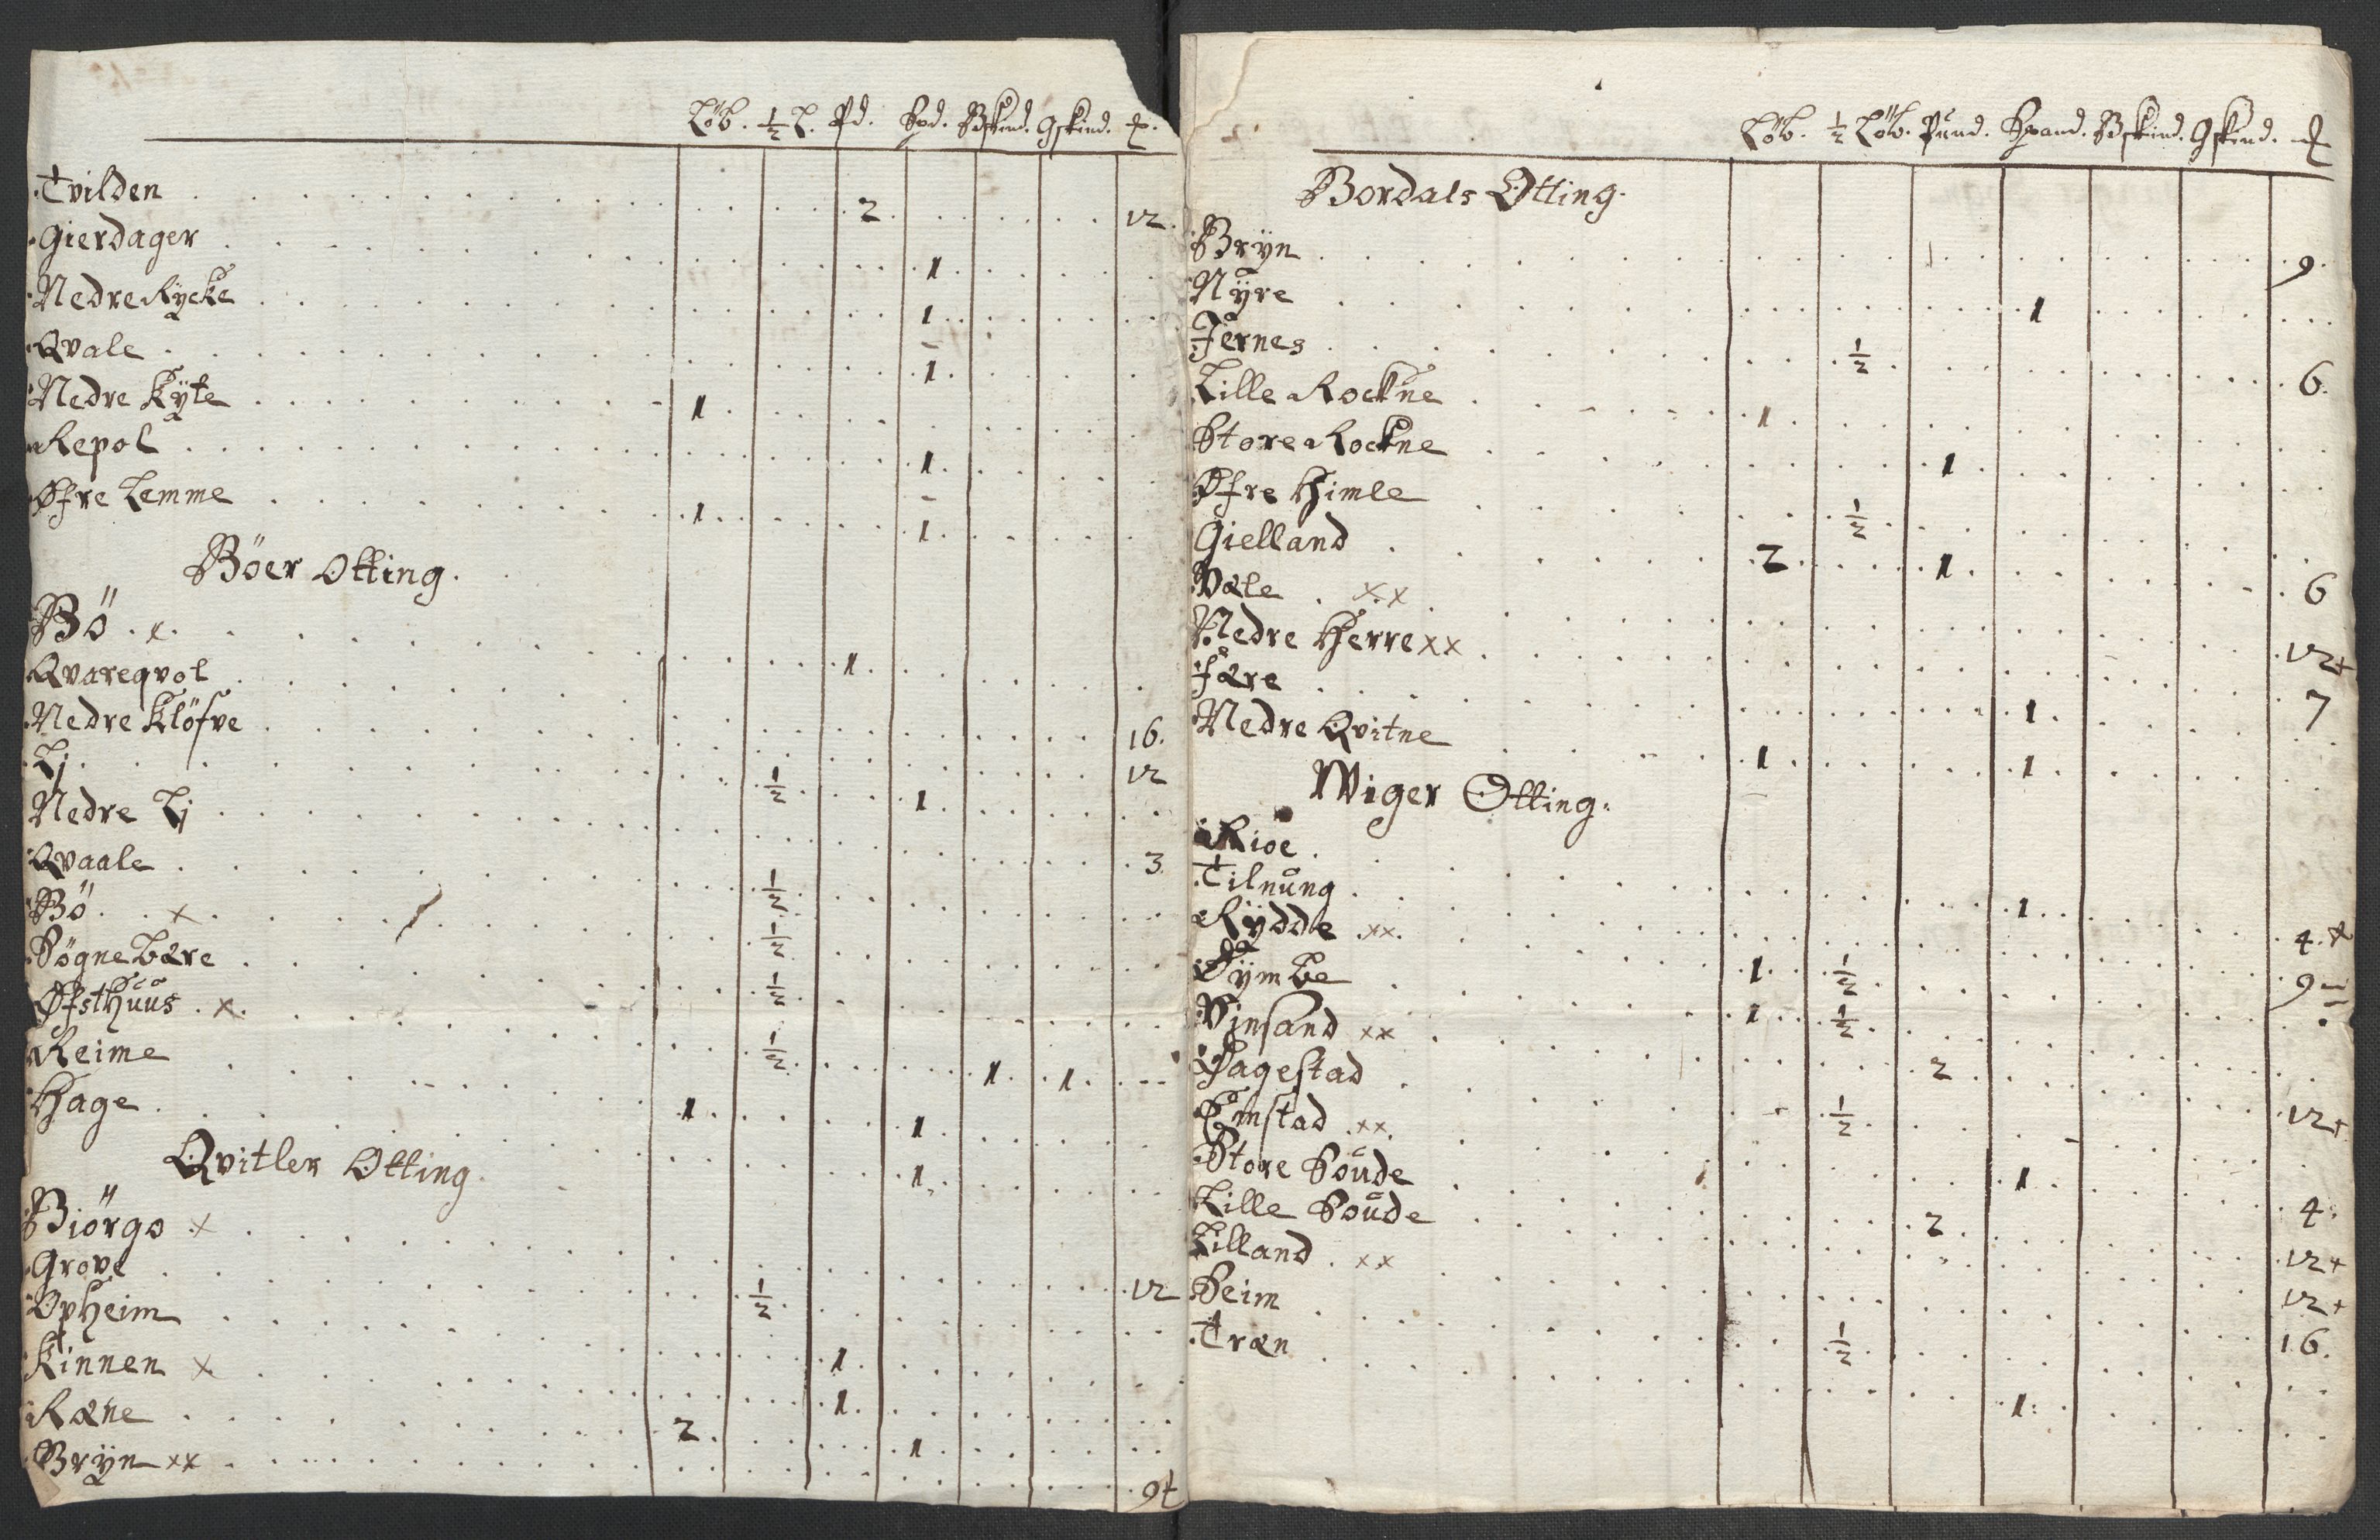 Løb. ½ L. Pd. Spd. Bskind. Gskind. ₰.
Tvilden 2 12.
Gierdager 1
Nedre Rycke 1
Qvale 1
Nedre Kÿte 1
Repol 1
Øfre Lemme 1 1
Böer Otting.
Bö x 1
Qvareqvol 16.
Nedre Klöfve 12
Lj ½ 1
Nedre Lj 3.
Qvaale ½
Bö x ½
Sögnebære ½
Øfsthuus x ½ 1 1
Reime 1 1
Hage 1
Qvitler Otting
Biörgo x 12
Grove ½
Opheim 1
Kinnen x 1
Ræne 2 1
Brÿn xx 9t
Løb. ½ Löb. Pund. Spand. Bskind. Gskind. ₰
Bordals Otting.
Brÿn 9.
Nÿre 1
Jernes ½ 6.
Lille Rockne 1
Store Rockne 1
Øfre Himle ½
Gielland 2 1 6
Væle xx 12+
Nedre Herre xx 7
Fære 1
Nedre Qvitne 1 1
Wiger Otting.
Rioe 1 4.+
Tilnung 9
Rÿdde xx 1 ½
Dÿmbe 1 ½
Vinsand xx 2 12+
Dagestad ½
Emstad xx 1 4.
Store Soude 2 12+
Lille Soude 12+
Lilland xx 16.
Seim ½
Træn 1